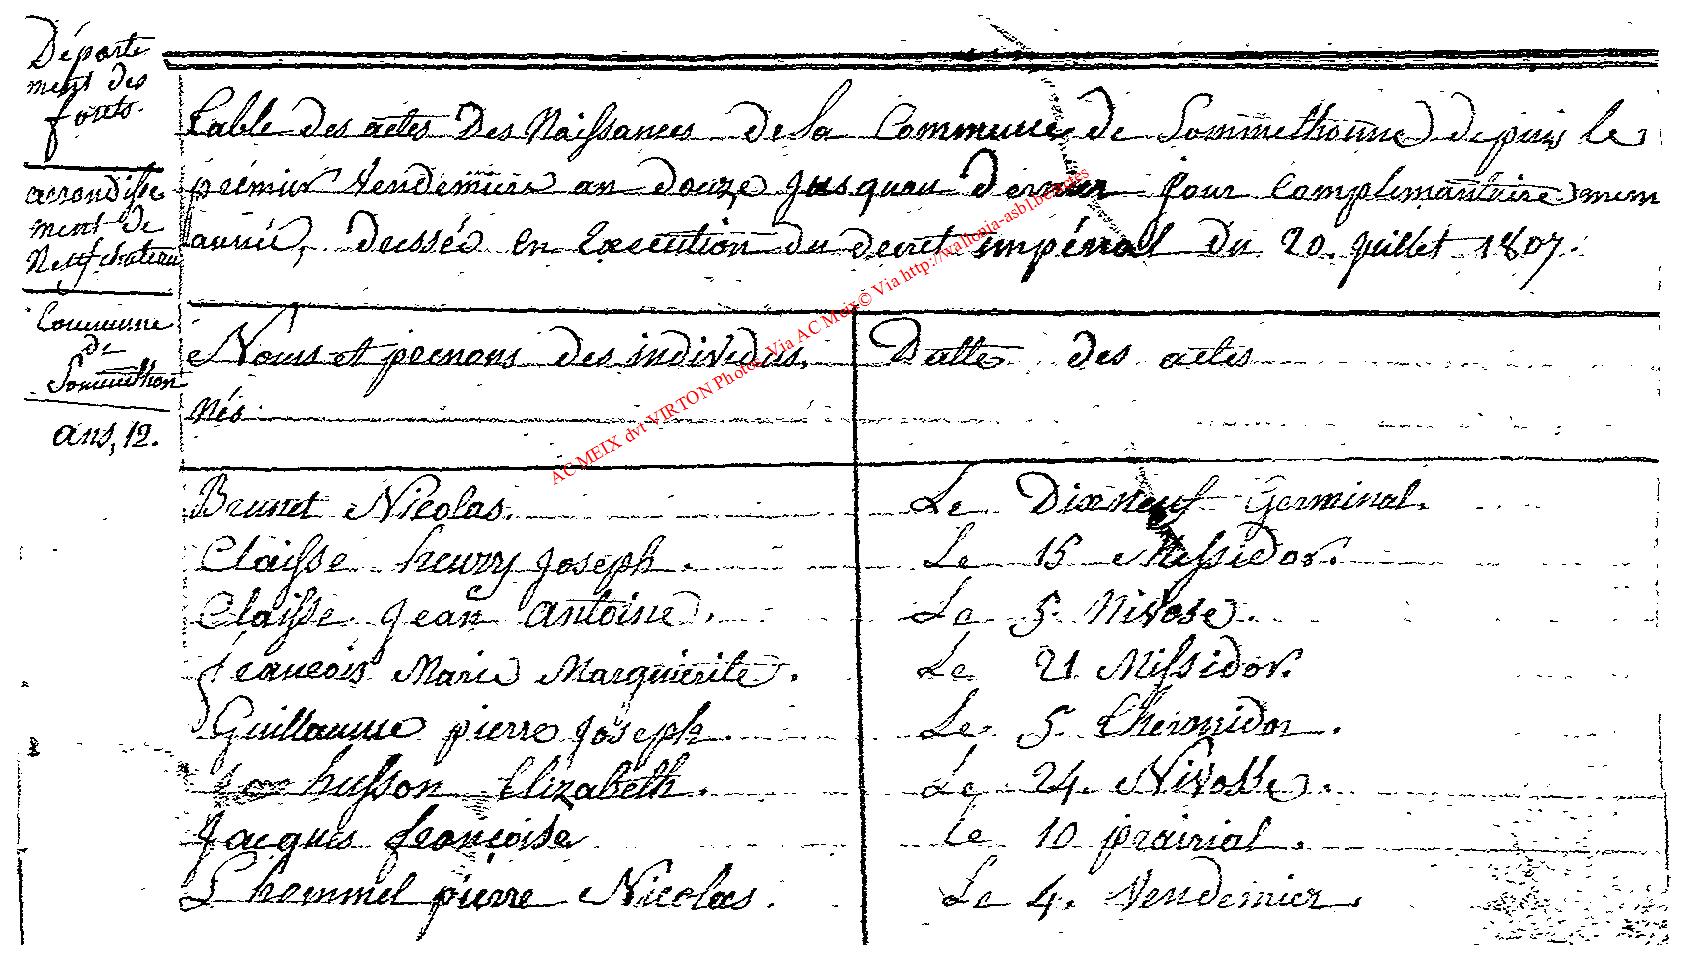 Départe
ment des
forets.
arrondisse
ment de
Neufchateau
Commune
de
Sommethon
ans, 12.
table des actes Des Naissances de la Commune de Sommethonne depuis le
prémier vendemiere an douze jusquau dernier jour Complimantaire mem
année, dressée en Execution du decret impérial du 20. juillet 1807.
Noms et prenoms des individus
Nés
Datte des actes
Brunet Nicolas. Le Dixneuf Germinal.
Claisse henry joseph. Le 15 Messidor.
Claisse jean antoine. Le 5. Nivose.
francois Marie Marguerite. Le 21 Missidor.
Guillaume pierre joseph. Le 5. thermidor.
husson Elizabeth. Le 24. Nivosse.
Jacques françoise Le 10 prairial.
Lhommel pierre Nicolas. Le 4. Vendemier.
AC MEIX dvt VIRTON Photos Via AC Meix© Via http://wallonia-asbl.be/textes